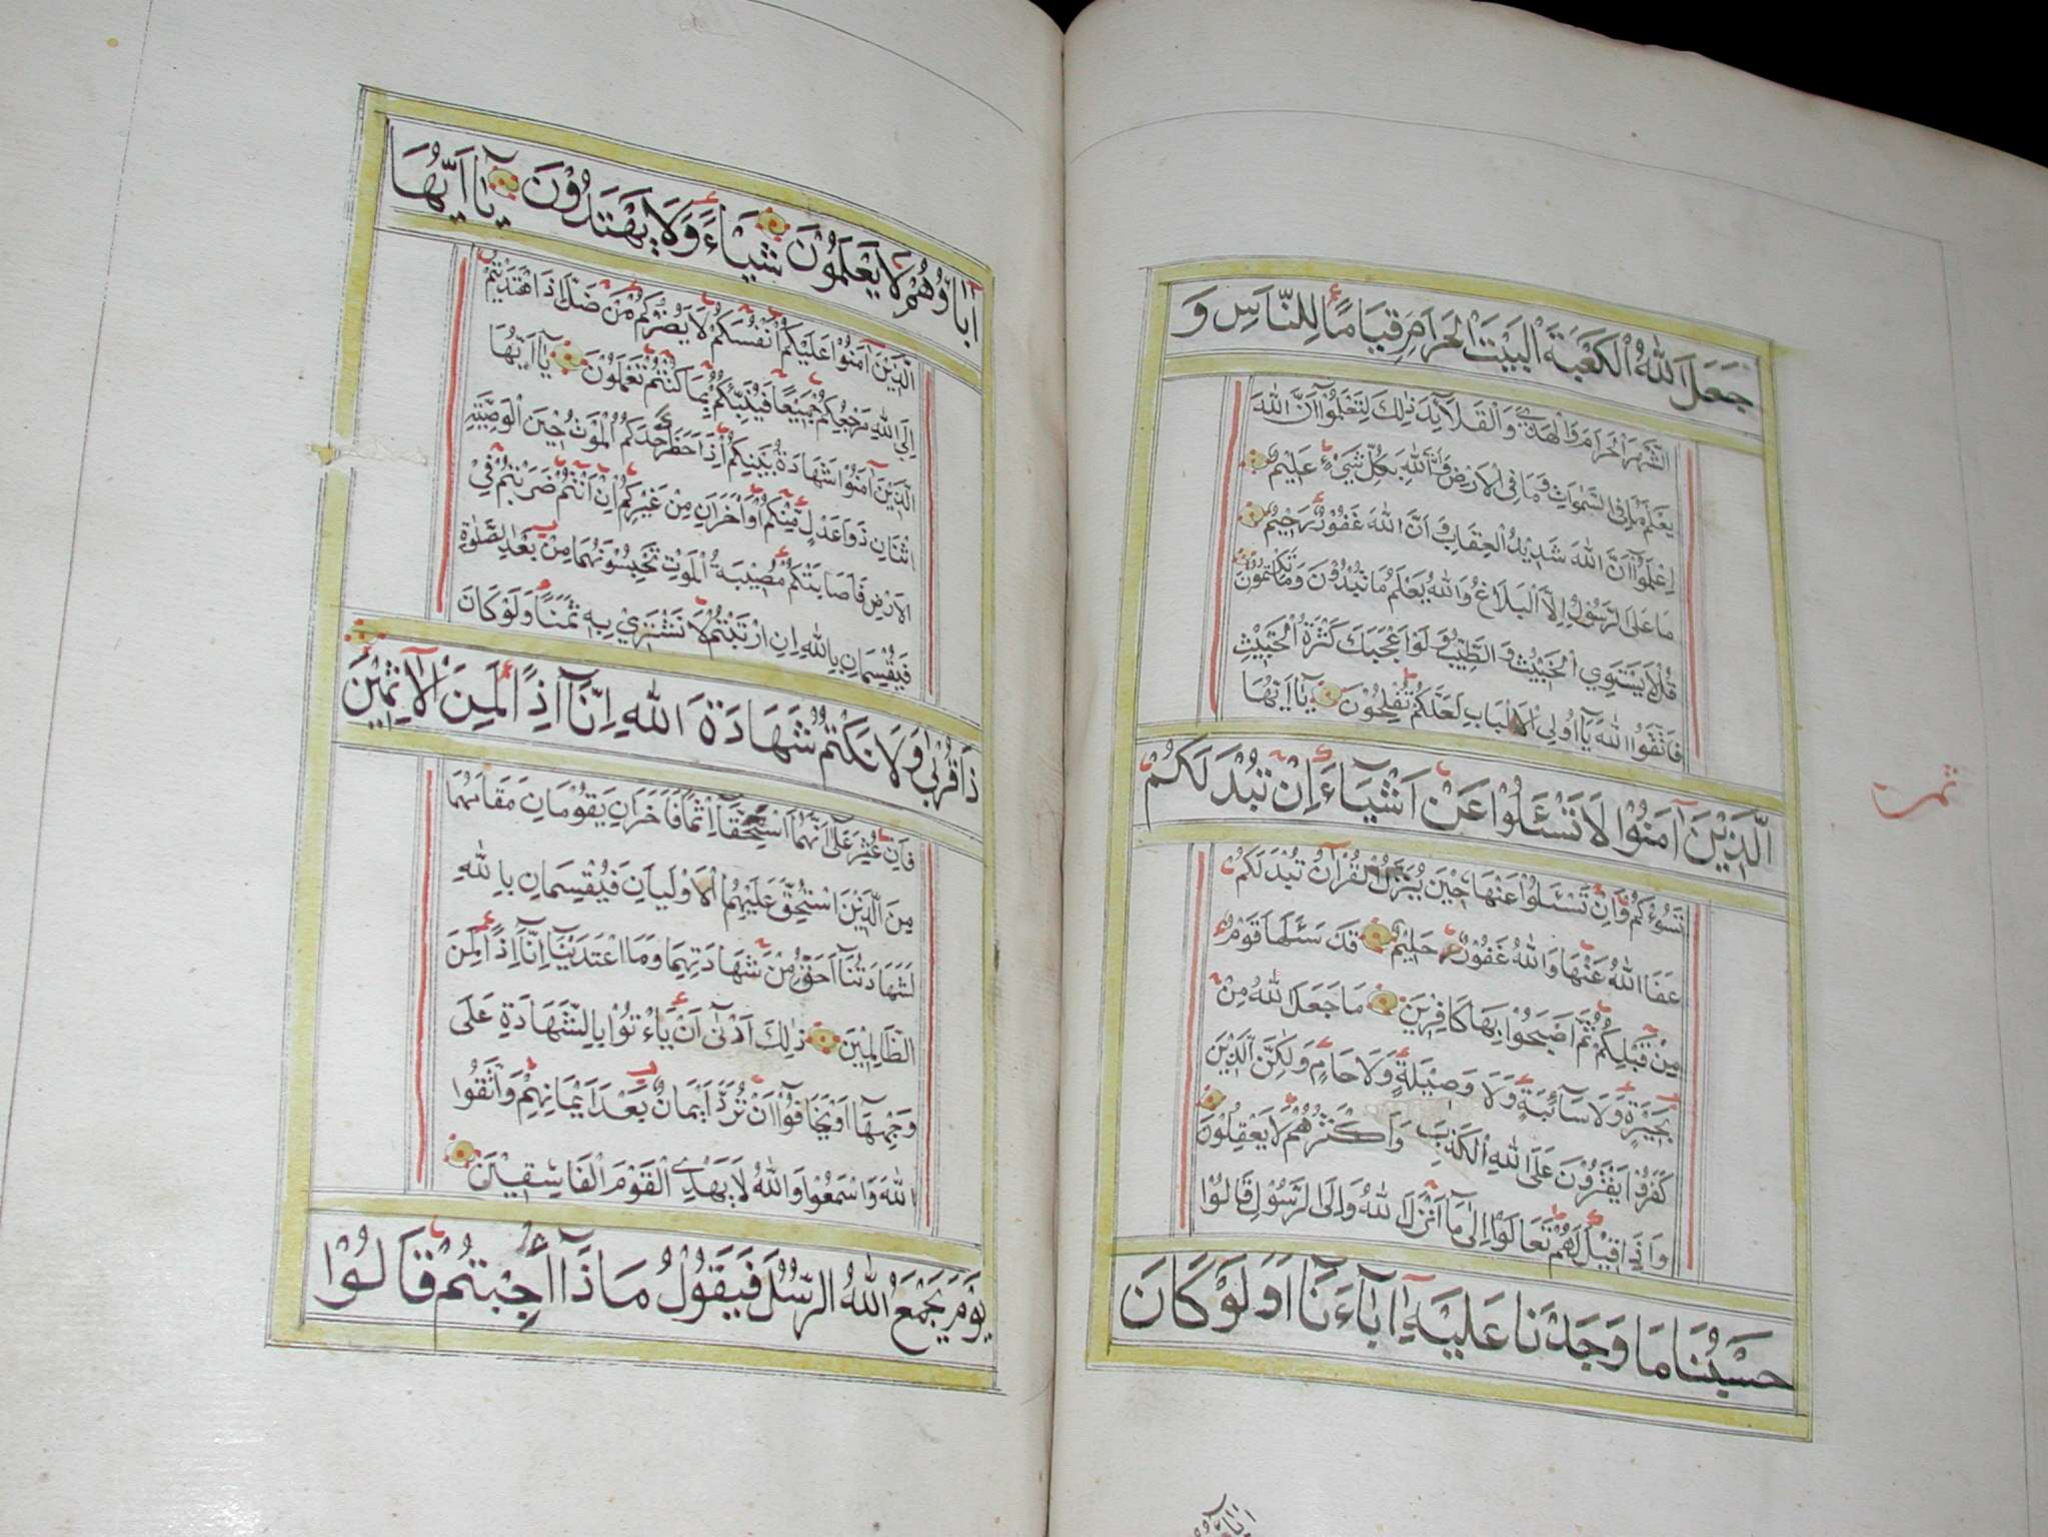 جَعَلَ اللّٰهُ الْكَعْبَةَ الْبَيْتَ الْحَرَامَ قِيَامًا لِلنَّاسِ وَ
الشَّهْرَ الْحَرَامَ وَالْهَدْيَ وَالْقَلَآئِدَ ذٰلِكَ لِتَعْلَمُوْٓا اَنَّ اللّٰهَ
يَعْلَمُ مَا فِي السَّمٰوَاتِ وَمَا فِي الْاَرْضِ وَاَنَّ اللّٰهَ بِكُلِّ شَيْءٍ عَلِيْمٌ
اِعْلَمُوْٓا اَنَّ اللّٰهَ شَدِيْدُ الْعِقَابِ وَ اَنَّ اللّٰهَ غَفُوْرٌ رَحِيْمٌ
مَا عَلَى الرَّسُوْلِ اِلَّا الْبَلَاغُ وَاللّٰهُ يَعْلَمُ مَا تُبْدُوْنَ وَمَا تَكْتُمُوْنَ
قُلْ لَا يَسْتَوِي الْخَبِيْثُ وَالطَّيِّبُ وَ لَوْ اَعْجَبَكَ كَثْرَةُ الْخَبِيْثِ
فَاتَّقُوا اللّٰهَ يَآ اُولِي الْاَلْبَابِ لَعَلَّكُمْ تُفْلِحُوْنَ يَآ اَيُّهَا
الَّذِيْنَ اٰمَنُوْا لَا تَسْئَلُوْا عَنْ اَشْيَآءَ اِنْ تُبْدَ لَكُمْ
تَسُؤْكُمْ وَاِنْ تَسْئَلُوْا عَنْهَا حِيْنَ يُنَزَّلُ الْقُرْاٰنُ تُبْدَ لَكُمْ
عَفَا اللّٰهُ عَنْهَا وَاللّٰهُ غَفُوْرٌ حَلِيْمٌ قَدْ سَئَلَهَا قَوْمٌ
مِنْ قَبْلِكُمْ ثُمَّ اَصْبَحُوْا بِهَا كَافِرِيْنَ مَا جَعَلَ اللّٰهُ مِنْ
بَحِيْرَةٍ وَلَا سَآئِبَةٍ وَلَا وَصِيْلَةٍ وَلَا حَامٍ وَلٰكِنَّ الَّذِيْنَ
كَفَرُوْا يَفْتَرُوْنَ عَلَى اللّٰهِ الْكَذِبَ وَاَكْثَرُهُمْ لَا يَعْقِلُوْنَ
وَاِذَا قِيْلَ لَهُمْ تَعَالَوْا اِلٰى مَآ اَنْزَلَ اللّٰهُ وَاِلَى الرَّسُوْلِ قَالُوْا
حَسْبُنَا مَا وَجَدْنَا عَلَيْهِ اٰبَآءَنَا اَوَلَوْ كَانَ
اٰبَاؤُهُمْ لَا يَعْلَمُوْنَ شَيْاءً وَلَا يَهْتَدُوْنَ يَآ اَيُّهَا
الَّذِيْنَ اٰمَنُوْا عَلَيْكُمْ اَنْفُسَكُمْ لَا يَضُرُّكُمْ مَنْ ضَلَّ اِذَا اهْتَدَيْتُمْ
اِلَى اللّٰهِ مَرْجِعُكُمْ جَمِيْعًا فَيُنَبِّئُكُمْ بِمَا كُنْتُمْ تَعْمَلُوْنَ يَآ اَيُّهَا
الَّذِيْنَ اٰمَنُوْا شَهَادَةُ بَيْنِكُمْ اِذَا حَضَرَ اَحَدَكُمُ الْمَوْتُ حِيْنَ الْوَصِيَّةِ
اثْنَانِ ذَوَا عَدْلٍ مِنْكُمْ اَوْ اٰخَرَانِ مِنْ غَيْرِكُمْ اِنْ اَنْتُمْ ضَرَبْتُمْ فِي
الْاَرْضِ فَاَصَابَتْكُمْ مُصِيْبَةُ الْمَوْتِ تَحْبِسُوْنَهُمَا مِنْ بَعْدِ الصَّلٰوةِ
فَيُقْسِمَانِ بِاللّٰهِ اِنِ ارْتَبْتُمْ لَا نَشْتَرِيْ بِهٖ ثَمَنًا وَلَوْ كَانَ
ذَا قُرْبٰى وَلَا نَكْتُمُ شَهَادَةَ اللّٰهِ اِنَّآ اِذًا لَمِنَ الْاٰثِمِيْنَ
فَاِنْ عُثِرَ عَلٰٓى اَنَّهُمَا اسْتَحَقَّآ اِثْمًا فَاٰخَرَانِ يَقُوْمَانِ مَقَامَهُمَا
مِنَ الَّذِيْنَ اسْتُحِقَّ عَلَيْهِمُ الْاَوْلَيَانِ فَيُقْسِمَانِ بِاللّٰهِ
لَشَهَادَتُنَآ اَحَقُّ مِنْ شَهَادَتِهِمَا وَمَا اعْتَدَيْنَآ اِنَّآ اِذًا لَمِنَ
الظَّالِمِيْنَ ذٰلِكَ اَدْنٰٓى اَنْ يَاْتُوْا بِالشَّهَادَةِ عَلٰى
وَجْهِهَآ اَوْ يَخَافُوْٓا اَنْ تُرَدَّ اَيْمَانٌ بَعْدَ اَيْمَانِهِمْ وَاتَّقُوا
اللّٰهَ وَاسْمَعُوْا وَاللّٰهُ لَا يَهْدِي الْقَوْمَ الْفَاسِقِيْنَ
يَوْمَ يَجْمَعُ اللّٰهُ الرُّسُلَ فَيَقُوْلُ مَاذَآ اُجِبْتُمْ قَالُوْا